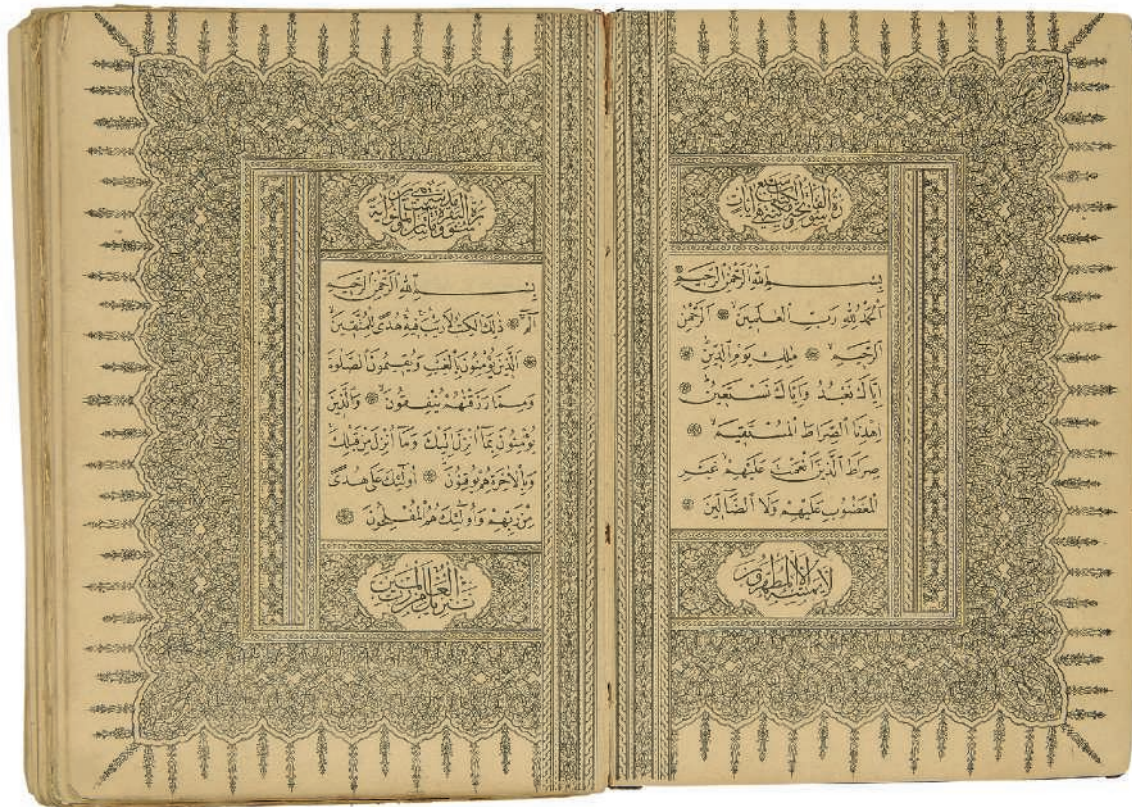 سورة الفاتحة مكية وهي سبع آيات
بِسْمِ اللهِ الرَّحْمٰنِ الرَّحِيمِ
اَلْحَمْدُ لِلّٰهِ رَبِّ الْعٰلَمِينَ ۞ اَلرَّحْمٰنِ
الرَّحِيمِ ۞ مٰلِكِ يَوْمِ الدِّينِ ۞
اِيَّاكَ نَعْبُدُ وَاِيَّاكَ نَسْتَعِينُ ۞
اِهْدِنَا الصِّرَاطَ الْمُسْتَقِيمَ ۞
صِرَاطَ الَّذِينَ اَنْعَمْتَ عَلَيْهِمْ غَيْرِ
الْمَغْضُوبِ عَلَيْهِمْ وَلَا الضَّالِّينَ ۞
لا يمسه الا المطهرون
سورة البقرة مدنية وهي مائتان آية
بِسْمِ اللهِ الرَّحْمٰنِ الرَّحِيمِ
الٓمٓ ۞ ذٰلِكَ الْكِتٰبُ لَا رَيْبَ فِيهِ هُدًى لِلْمُتَّقِينَ
۞ اَلَّذِينَ يُؤْمِنُونَ بِالْغَيْبِ وَيُقِيمُونَ الصَّلٰوةَ
وَمِمَّا رَزَقْنٰهُمْ يُنْفِقُونَ ۞ وَالَّذِينَ
يُؤْمِنُونَ بِمَا اُنْزِلَ اِلَيْكَ وَمَا اُنْزِلَ مِنْ قَبْلِكَ
وَبِالْاٰخِرَةِ هُمْ يُوقِنُونَ ۞ اُولٰئِكَ عَلٰى هُدًى
مِنْ رَبِّهِمْ وَاُولٰئِكَ هُمُ الْمُفْلِحُونَ ۞
تنزيل من رب العالمين